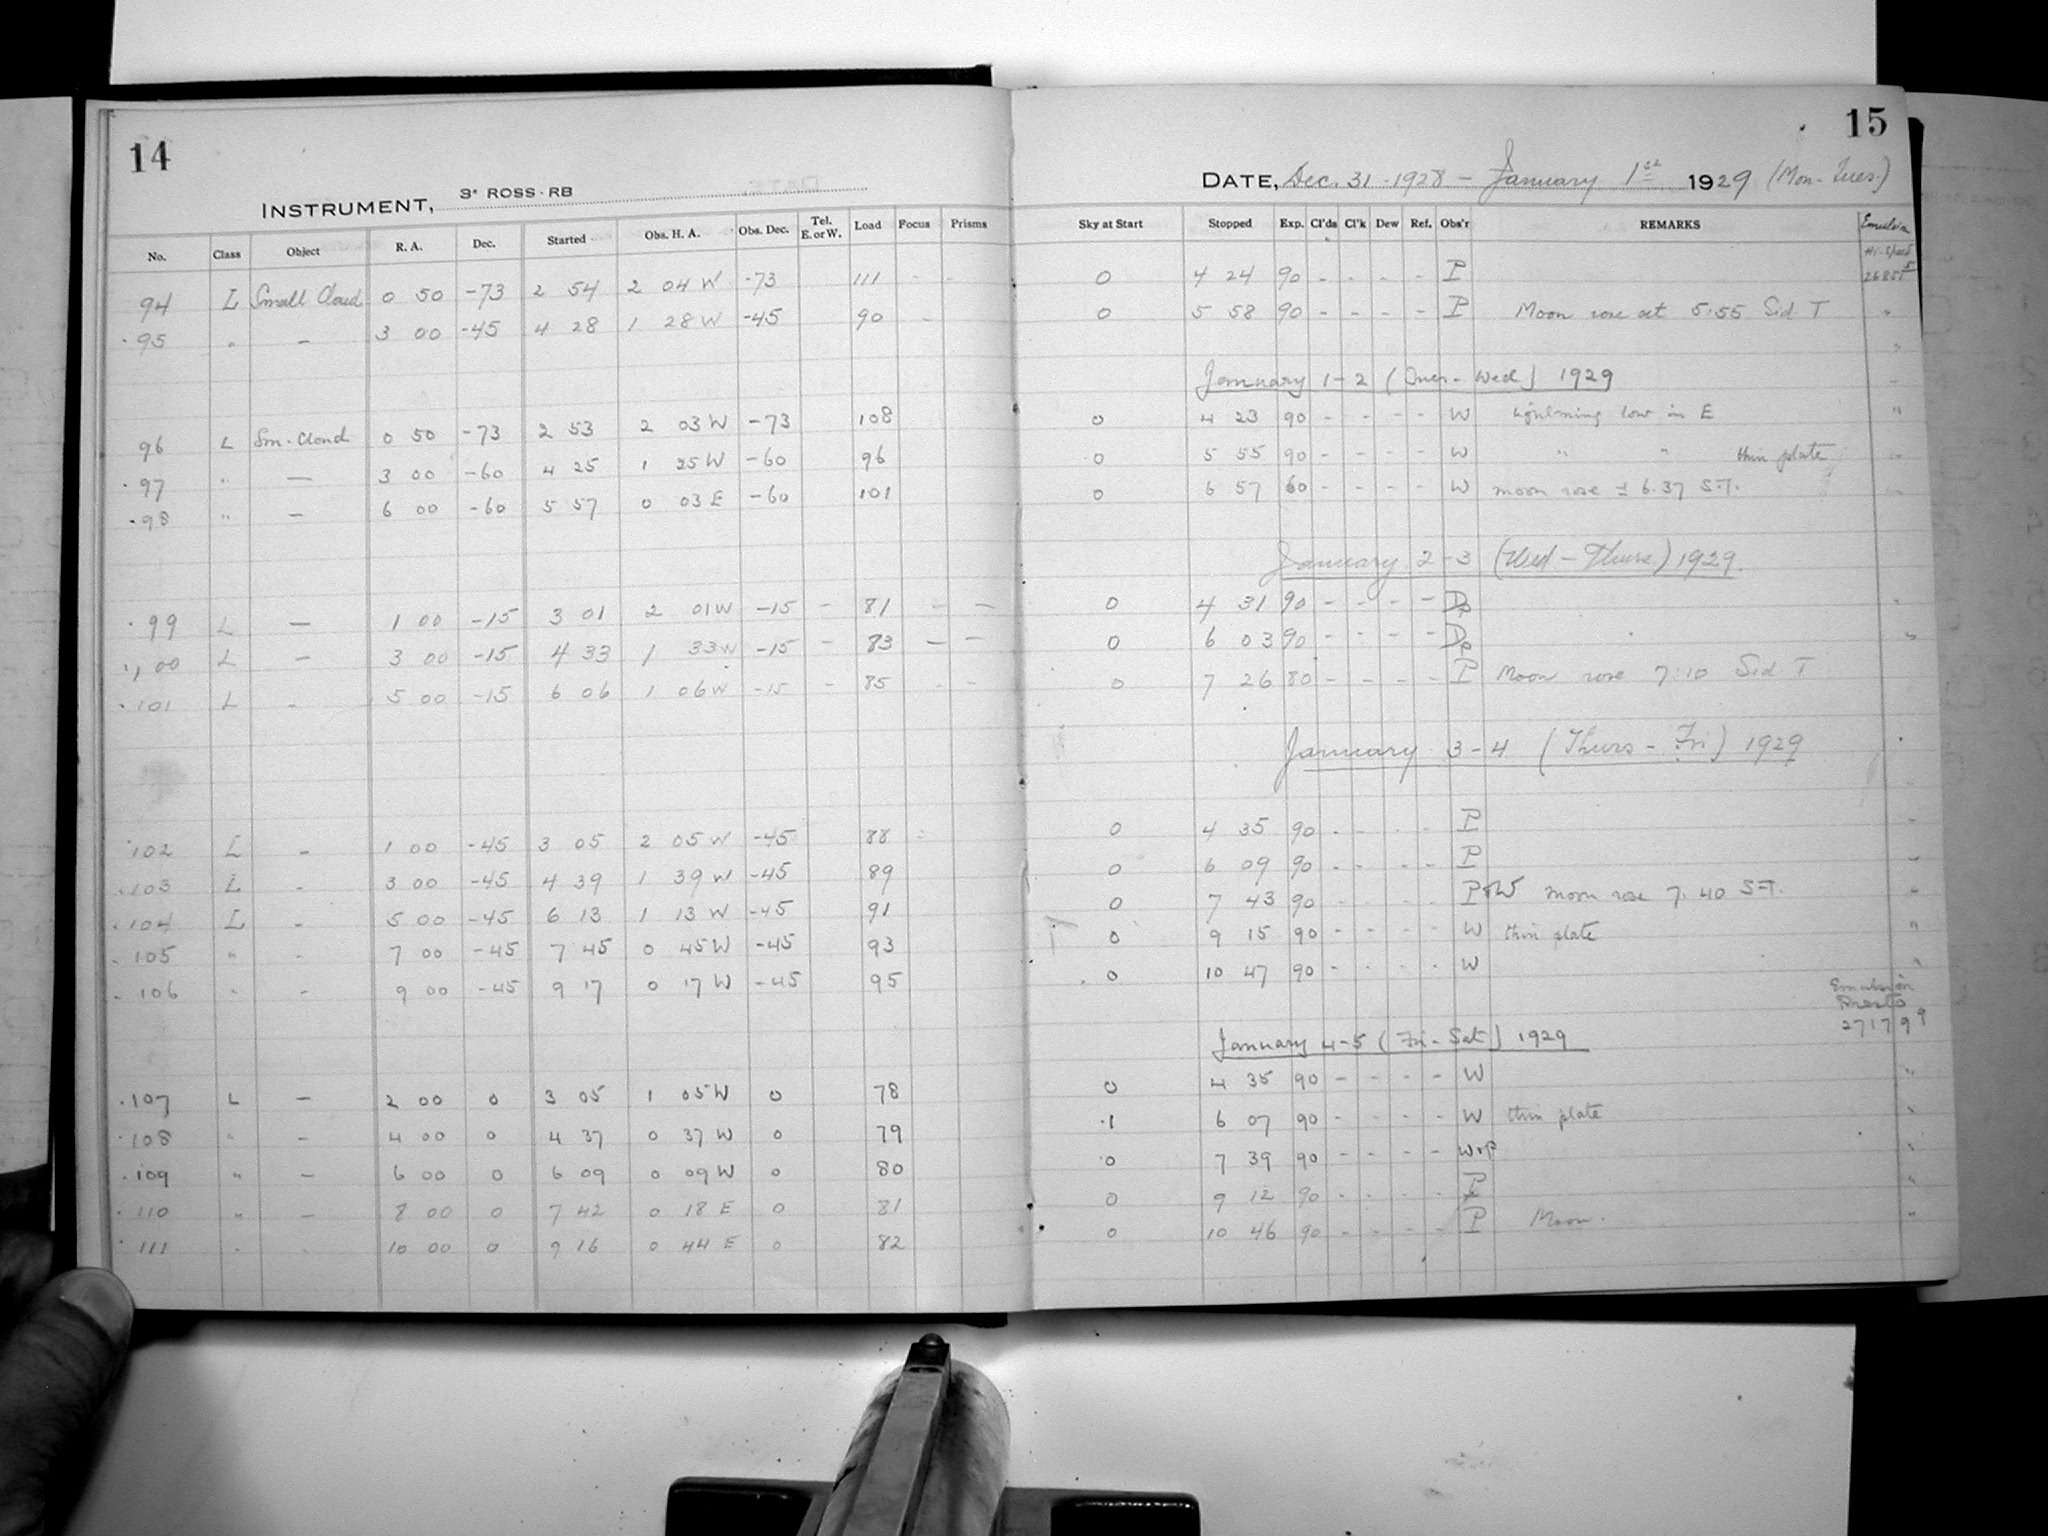 14
INSTRUMENT, 3" ROSS-RB
No. Class Object R. A. Dec. Started Obs. H. A. Obs. Dec. Tel. E. or W. Load Focus Prisms
94 L Small Cloud 0 50 -73 2 54 2 04 W -73 111 - -
95 " — 3 00 -45 4 28 1 28 W -45 90 -
96 L Sm. Cloud 0 50 -73 2 53 2 03 W -73 108
97 " — 3 00 -60 4 25 1 25 W -60 96
98 " — 6 00 -60 5 57 0 03 E -60 101
99 L — 1 00 -15 3 01 2 01 W -15 - 81 - -
100 L — 3 00 -15 4 33 1 33 W -15 - 83 - -
101 L - 5 00 -15 6 06 1 06 W -15 - 85 - -
102 L - 1 00 -45 3 05 2 05 W -45 88 -
103 L - 3 00 -45 4 39 1 39 W -45 89
104 L - 5 00 -45 6 13 1 13 W -45 91
105 " - 7 00 -45 7 45 0 45 W -45 93
106 " - 9 00 -45 9 17 0 17 W -45 95
107 L — 2 00 0 3 05 1 05 W 0 78
108 " - 4 00 0 4 37 0 37 W 0 79
109 " — 6 00 0 6 09 0 09 W 0 80
110 " — 8 00 0 7 42 0 18 E 0 81
111 " - 10 00 0 9 16 0 44 E 0 82
15
DATE, Dec. 31 - 1928 - January 1st 1929 (Mon-Tues.)
Sky at Start Stopped Exp. Cl'ds Cl'k Dew Ref. Obs'r REMARKS Emulsion
Hi-Speed
0 4 24 90 - - - - P
0 5 58 90 - - - - P Moon rose at 5:55 Sid T "
January 1-2 (Tues-Wed) 1929
0 4 23 90 - - - - W Lightning low in E "
0 5 55 90 - - - - W " " thin plate "
0 6 57 60 - - - - W moon rose ± 6.37 S.T. "
January 2-3 (Wed-Thurs) 1929
0 4 31 90 - - - - Dp "
0 6 03 90 - - - - Dp "
0 7 26 80 - - - - P Moon rose 7:10 Sid T
January 3-4 (Thurs-Fri) 1929
0 4 35 90 - - - - P "
0 6 09 90 - - - - P "
0 7 43 90 - - - - P+W moon rose 7.40 S.T. "
0 9 15 90 - - - - W thin plate "
0 10 47 90 - - - - W "
Emulsion
Presto
27179
January 4-5 (Fri-Sat) 1929
0 4 35 90 - - - - W "
.1 6 07 90 - - - - W thin plate "
0 7 39 90 - - - - W+P "
0 9 12 90 - - - - P "
0 10 46 90 - - - - P Moon. "